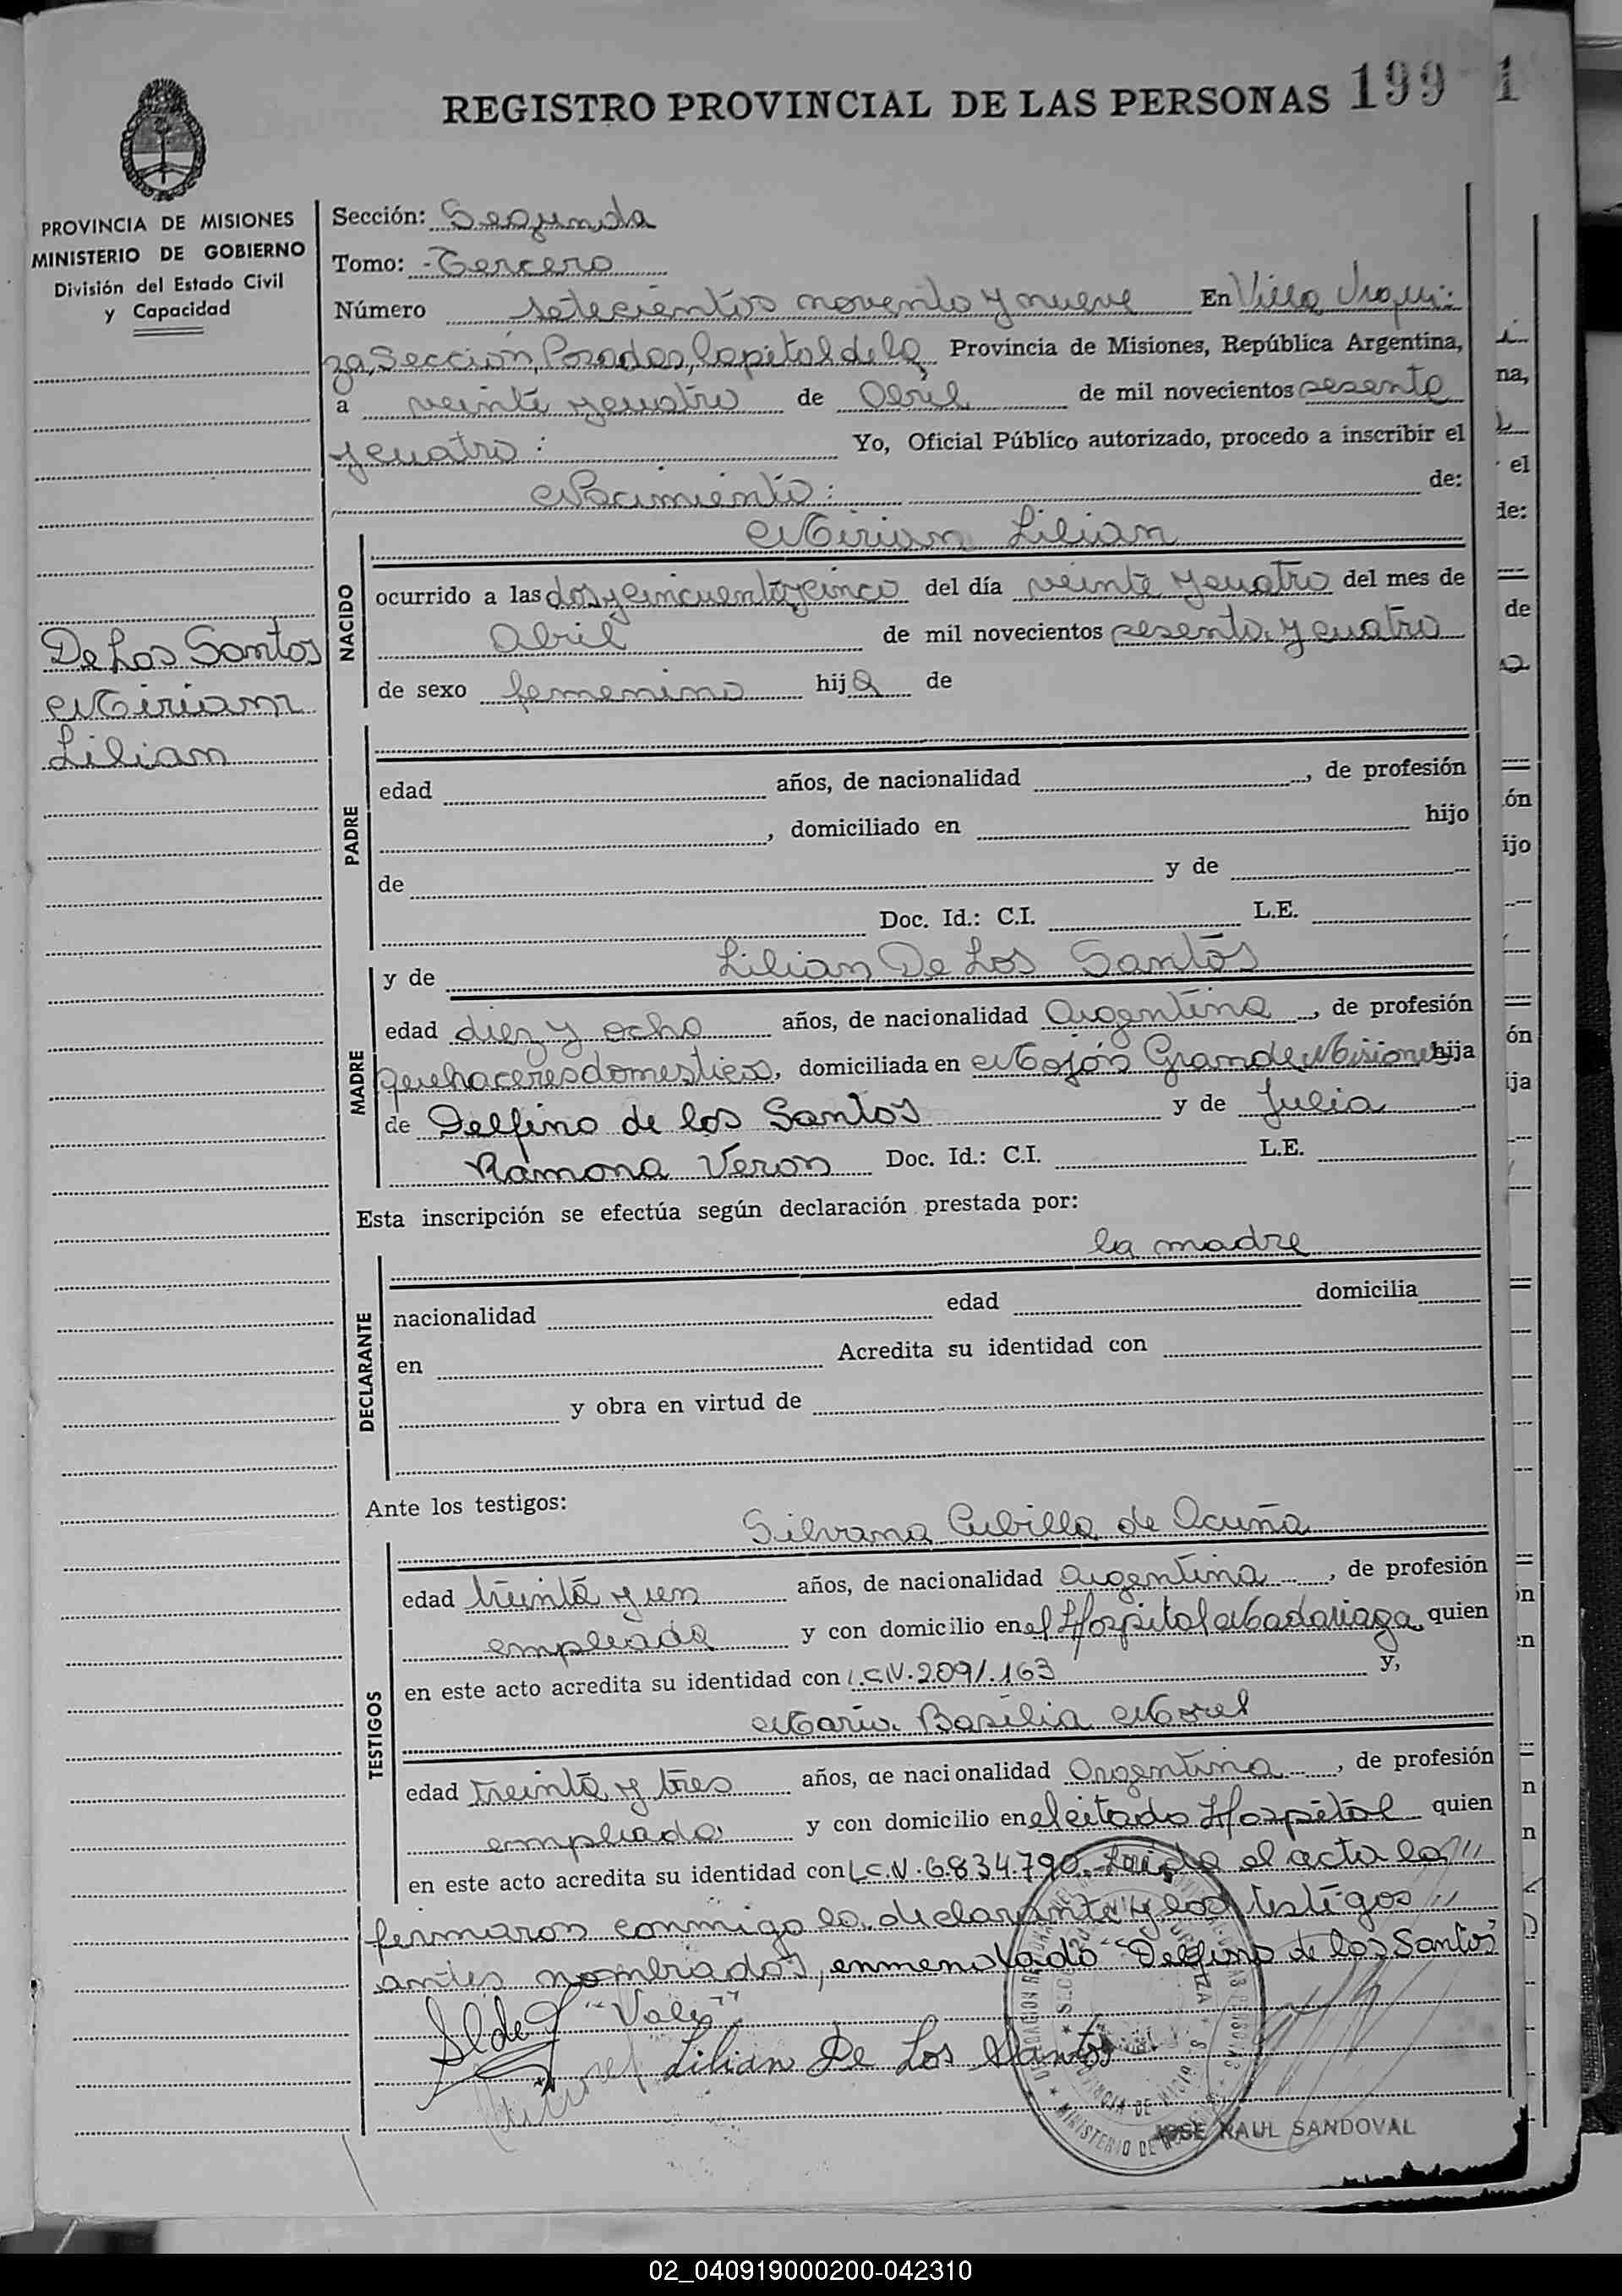 REGISTRO PROVINCIAL DE LAS PERSONAS 199 1
PROVINCIA DE MISIONES
MINISTERIO DE GOBIERNO
División del Estado Civil
y Capacidad
Sección: Segunda
Tomo: -Tercero
Número setecientos noventa y nueve En Villa Urqui-
za, Sección, Posadas, Capital de la Provincia de Misiones, República Argentina,
a veinte y cuatro de Abril de mil novecientos sesenta
y cuatro: Yo, Oficial Público autorizado, procedo a inscribir el
Nacimiento: de:
NACIDO
Mirian Lilian
ocurrido a las dos y cincuenta y cinco del día veinte y cuatro del mes de
Abril de mil novecientos sesenta y cuatro
de sexo femenino hija de
De Los Santos
Miriam
Lilian
PADRE
edad años, de nacionalidad , de profesión
, domiciliado en hijo
de y de
Doc. Id.: C.I. L.E.
MADRE
y de Lilian De Los Santos
edad diez y ocho años, de nacionalidad Argentina, de profesión
quehaceres domesticos, domiciliada en Mojón Grande Misiones hija
de Delfino de los Santos y de Julia
Ramona Veron Doc. Id.: C.I. L.E.
Esta inscripción se efectúa según declaración prestada por:
la madre
DECLARANTE
nacionalidad edad domicilia
en Acredita su identidad con
y obra en virtud de
Ante los testigos:
TESTIGOS
Silvana Cubilla de Acuña
edad treinta y un años, de nacionalidad Argentina, de profesión
empleada y con domicilio en el Hospital Madariaga quien
en este acto acredita su identidad con L.C.N. 2.091.163 y,
María Basilia Morel
edad treinta y tres años, de nacionalidad Argentina, de profesión
empleada y con domicilio en el citado Hospital quien
en este acto acredita su identidad con L.C.N. 6.834.790. Leida el acta la"
firmaron conmigo la declarante y los testigos "
antes nombrados, enmendado "Delfino de los Santos"
"Vale"
Lilian De Los Santos
JOSE RAUL SANDOVAL
02_040919000200-042310